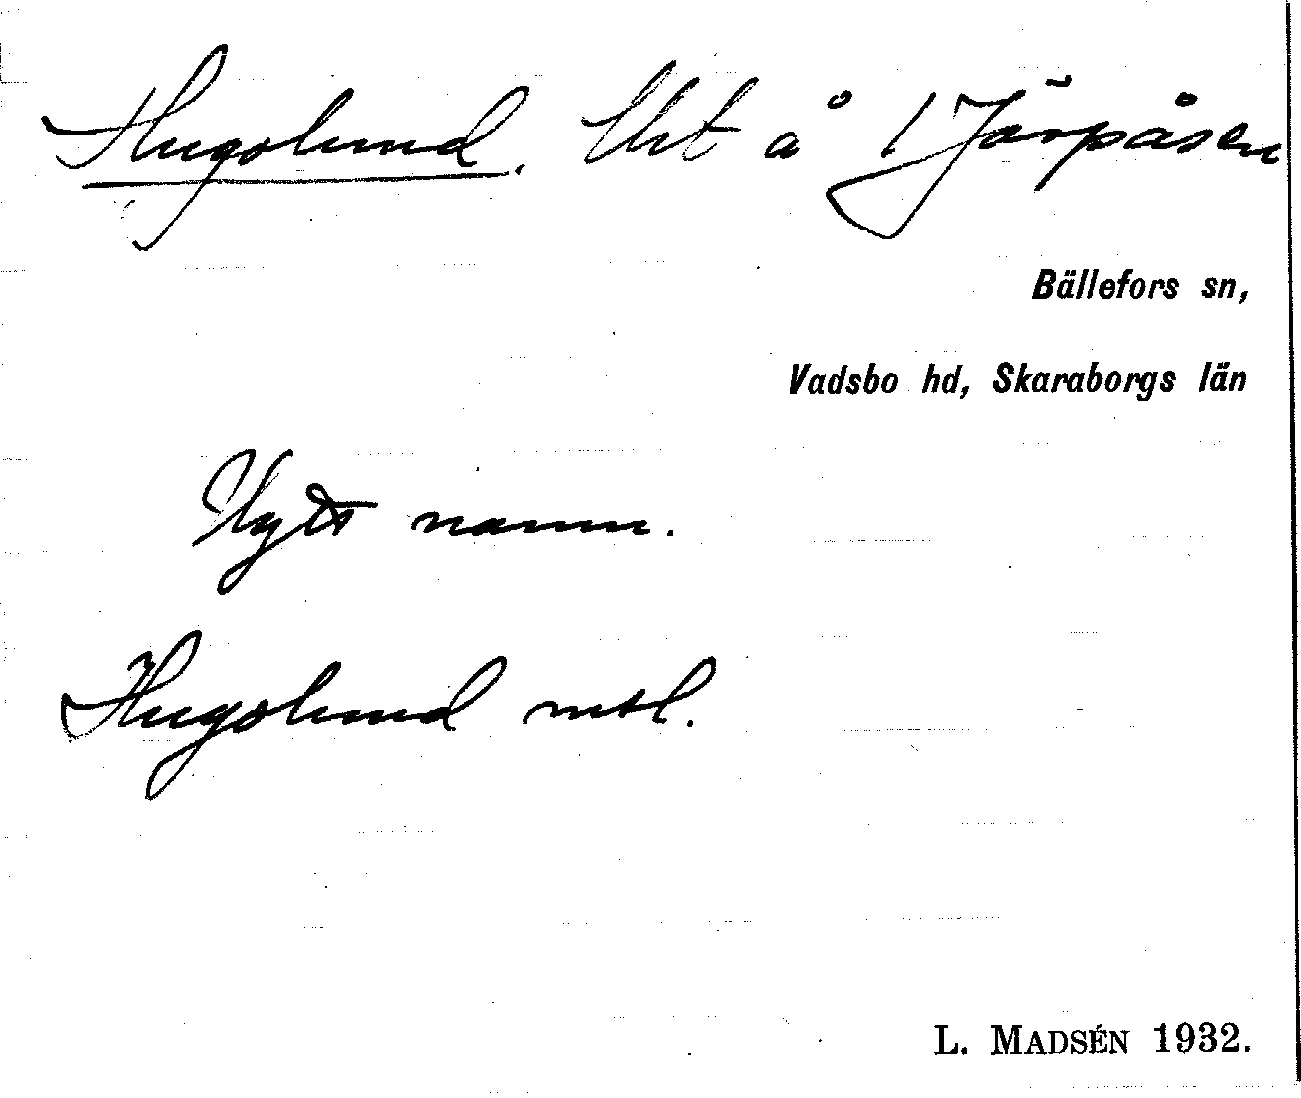 Hugolund. Uht å 1 Järpåsen
Bällefors sn,
Vadsbo hd, Skaraborgs län
Nytt namn.
Hugolund mtl.
L. MADSÉN 1932.